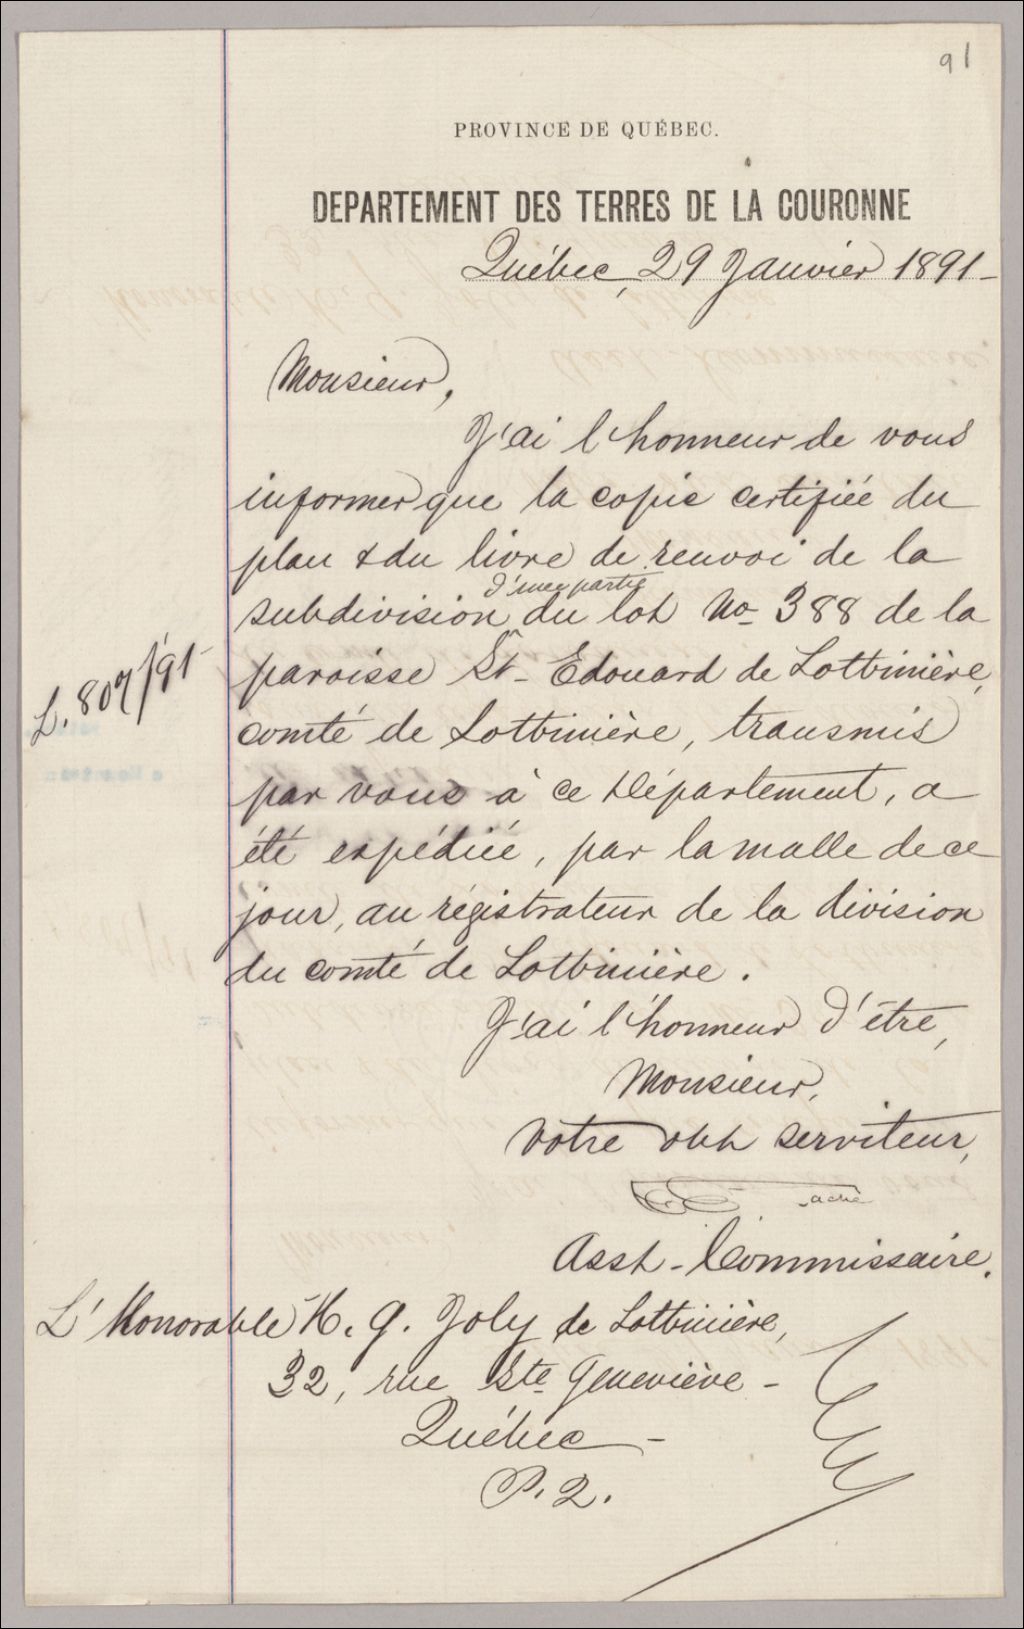 91
PROVINCE DE QUÉBEC.
DEPARTEMENT DES TERRES DE LA COURONNE
Québec, 29 Janvier 1891-
Monsieur,
J'ai l'honneur de vous
informer que la copie certifiée du
plan & du livre de renvoi de la
d'une partie
subdivision du lot No 388 de la
L. 807/91-
paroisse St- Edouard de Lotbinière,
comté de Lotbinière, transmis
par vous à ce Département, a
été expédiée, par la malle de ce
jour, au régistrateur de la division
du comté de Lotbinière.
J'ai l'honneur d'être,
Monsieur,
Votre obt serviteur,
Taché
Asst-Commissaire.
L'Honorable H. G. Joly de Lotbinière,
32, rue Ste Geneviève -
Québec -
P. Q.